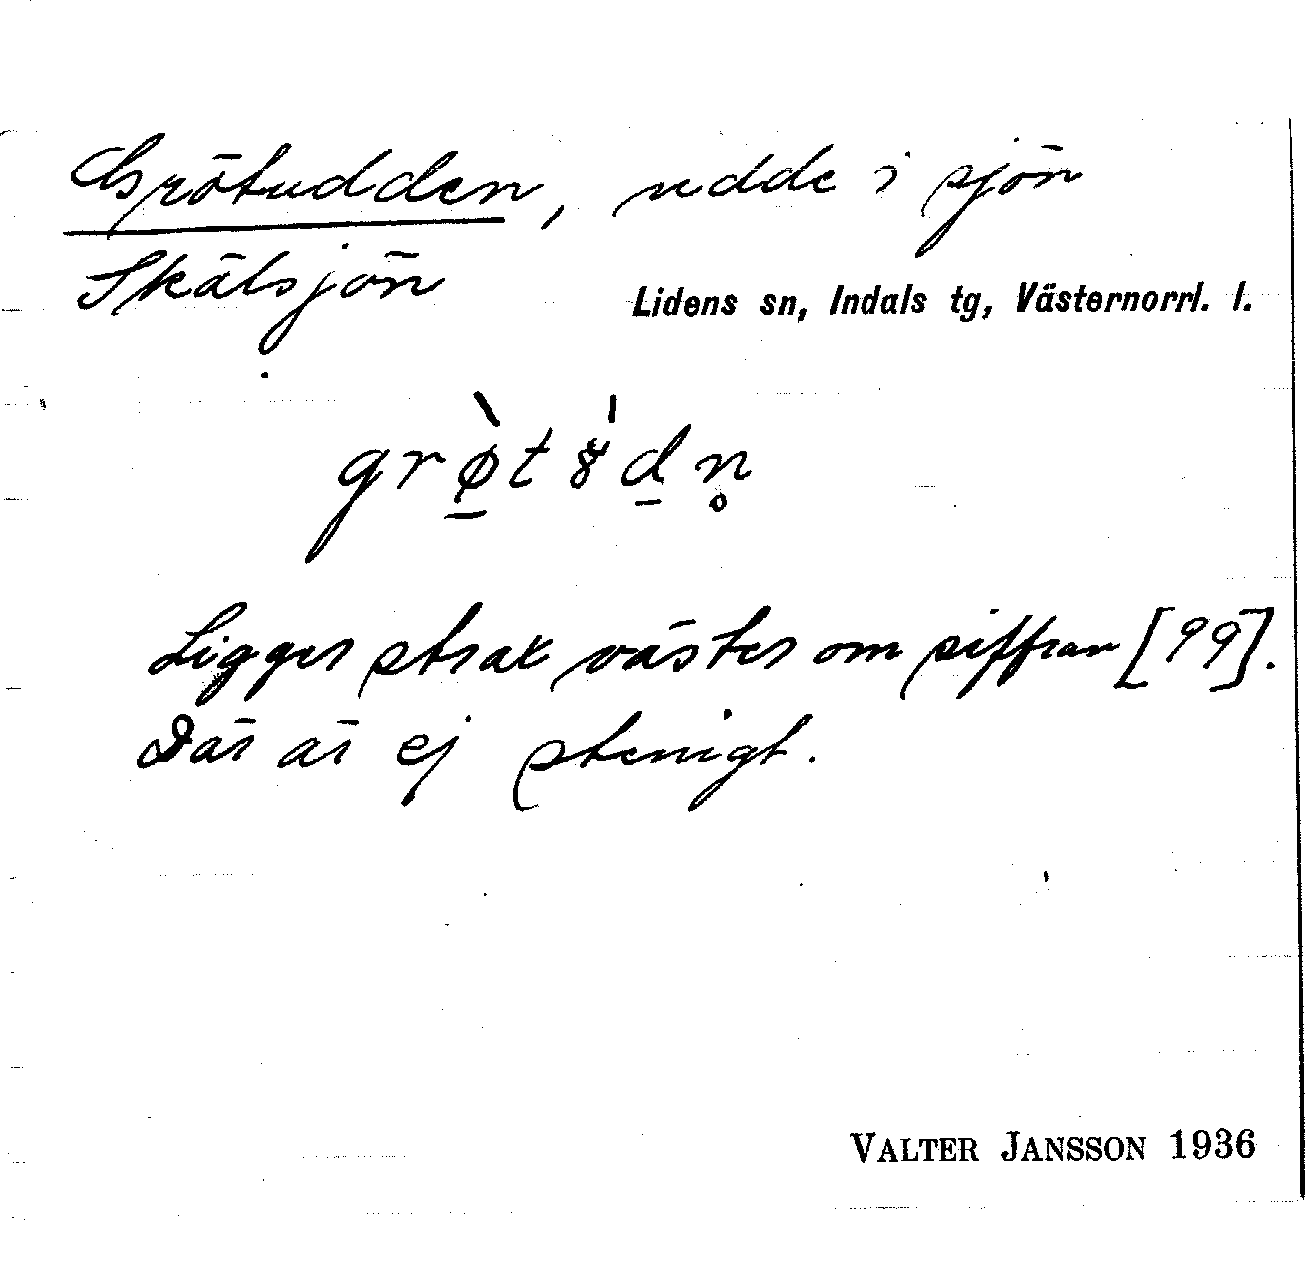 Grötudden, udde i sjön
Skälsjön
Lidens sn, Indals tg, Västernorrl. l.
grø̀tɤ́dn̥
Ligger strax väster om siffran [99].
Där är ej stenigt.
VALTER JANSSON 1936